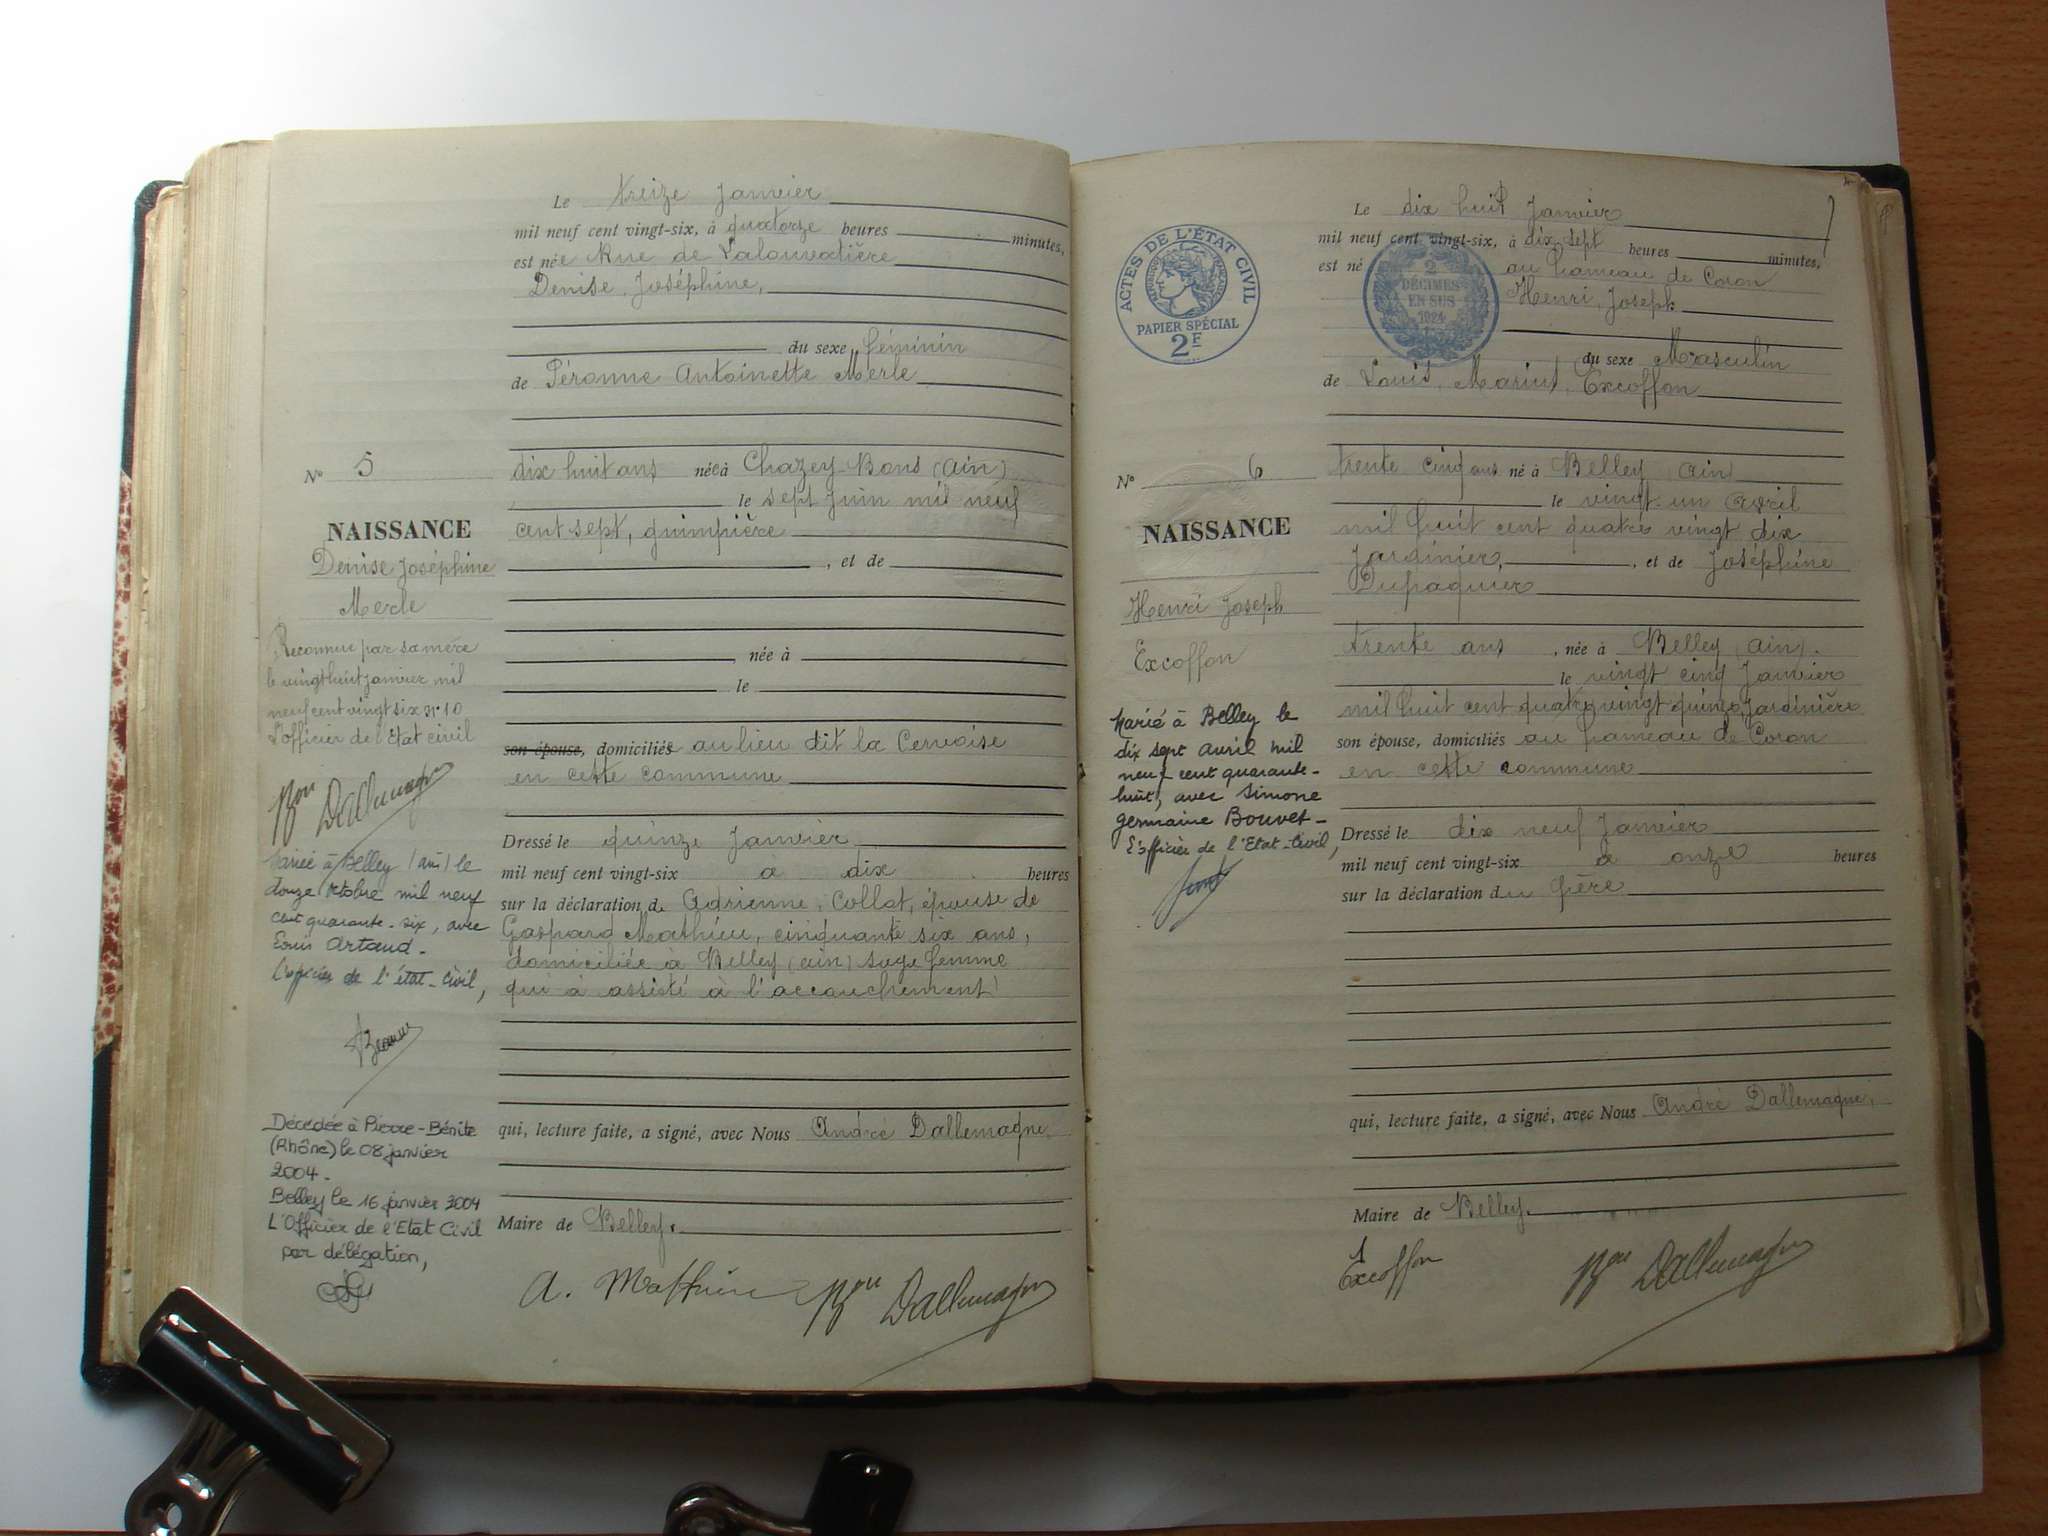 Le treize Janvier
mil neuf cent vingt-six, à quatorze heures minutes,
est née Rue de Lalouvatière
Denise, Joséphine,
du sexe féminin
de Péronne Antoinette Merle
dix huit ans née à Chazey-Bons (Ain)
le sept Juin mil neuf
cent sept, guimpière
, et de
, née à
le
son épouse, domiciliée au lieu dit la Cervoise
en cette commune
Dressé le quinze Janvier
mil neuf cent vingt-six à dix heures
sur la déclaration de Adrienne, Collot, épouse de
Gaspard Mathieu, cinquante six ans,
domiciliée à Belley (ain) sage femme
qui a assisté à l'accouchement
qui, lecture faite, a signé, avec Nous André Dallemagne,
Maire de Belley.
A. Mathieu Bon Dallemagne
N° 5
NAISSANCE
Denise Joséphine
Merle
Reconnue par sa mère
le vingt huit janvier mil
neuf cent vingt six N° 10
L'officier de l'Etat civil
Bon Dallemagne
Mariée à Belley (ain) le
douze octobre mil neuf
cent quarante-six, avec
Louis Artaud-
L'officier de l'état-civil,
Décédée à Pierre-Bénite
(Rhône) le 08 janvier
2004.
Belley le 16 janvier 2004
L'Officier de l'Etat Civil
par délégation,
ACTES DE L'ÉTAT CIVIL
PAPIER SPÉCIAL
2F
2
DÉCIMES
EN SUS
1924
Le dix huit Janvier
mil neuf cent vingt-six, à dix sept heures minutes,
est né au hameau de Coron
Henri, Joseph
du sexe Masculin
de Louis, Marius, Excoffon
trente cinq ans né à Belley (ain)
le vingt-un avril
mil huit cent quatre vingt dix
Jardinier, , et de Joséphine
Dupaquier
trente ans , née à Belley (ain).
le vingt cinq Janvier
mil huit cent quatre vingt quinze Jardinière
son épouse, domiciliés au hameau de Coron
en cette commune
Dressé le dix neuf Janvier
mil neuf cent vingt-six à onze heures
sur la déclaration du père
qui, lecture faite, a signé, avec Nous André Dallemagne,
Maire de Belley.
Excoffon Bon Dallemagne
N° 6
NAISSANCE
Henri Joseph
Excoffon
Marié à Belley le
dix sept avril mil
neuf cent quarante-
huit, avec Simone
germaine Bouvet-
L'officier de l'Etat-Civil,